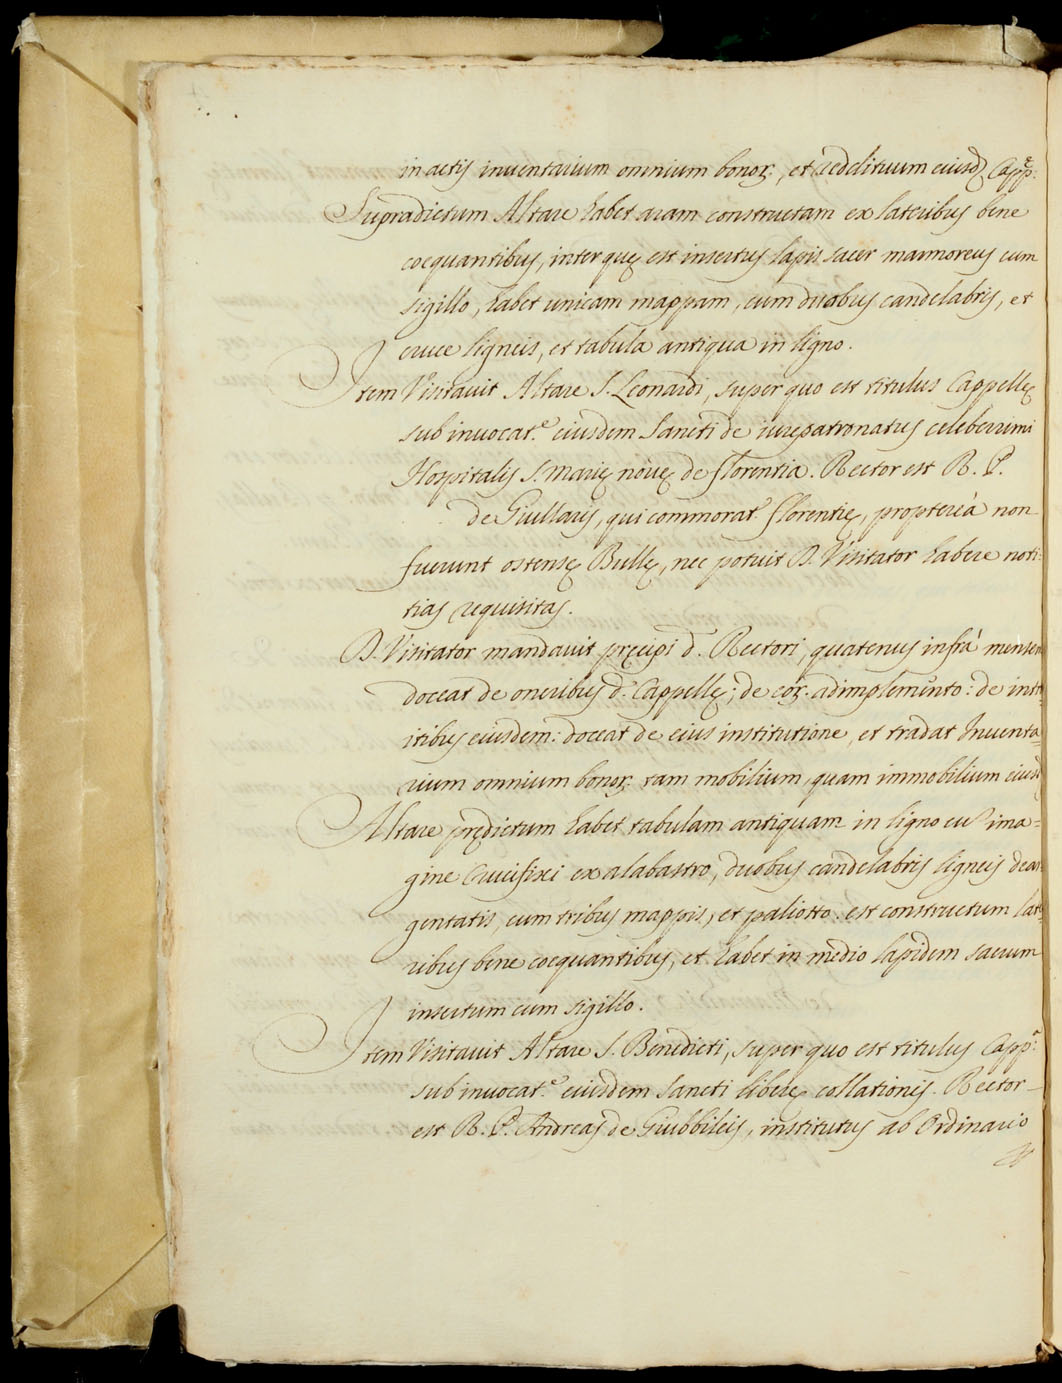 in actis inventarium omnium bonor:, et reddituum eiusd. Capp.ę:
Supradictum Altare habet aram constructam ex lateribus bene
coequantibus, inter quę est insertus lapis sacer marmoreus cum
sigillo, habet unicam mappam, cum duobus candelabris, et
cruce ligneis, et tabula antiqua in ligno.
Item Visitavit Altare S. Leonardi, super quo est titulus Cappellę
sub invocat.e eiusdem Sancti de iurepatronatus celeberrimi
Hospitalis S. Marię novę de Florentia. Rector est R. P.
de Giullaris, qui commorat.r Florentię, proptereà non
fuerunt ostensę Bullę, nec potuit D. Visitator habere noti:
tias requisitas.
D. Visitator mandavit pręcipi d. Rectori, quatenus infrà mensem
doceat de oneribus d. Cappellę; de eor: adimplemento: de intro
itibus eiusdem: doceat de eius institutione, et tradat Inventa=
rium omnium bonor: tam mobilium, quam immobilium eiusd
Altare prędictum habet tabulam antiquam in ligno cu ima=
gine Crucifixi ex alabastro, duobus candelabris ligneis dear:
gentatis, cum tribus mappis, et paliotto: est constructum late
ribus bene coequantibus, et habet in medio lapidem sacrum
insertum cum sigillo.
Item Visitavit Altare S. Benedicti, super quo est titulus Capp.ę
sub invocat.e eiusdem Sancti liberę collationis. Rector
est R. P. Andreas de Giubbileis, institutus ab Ordinario